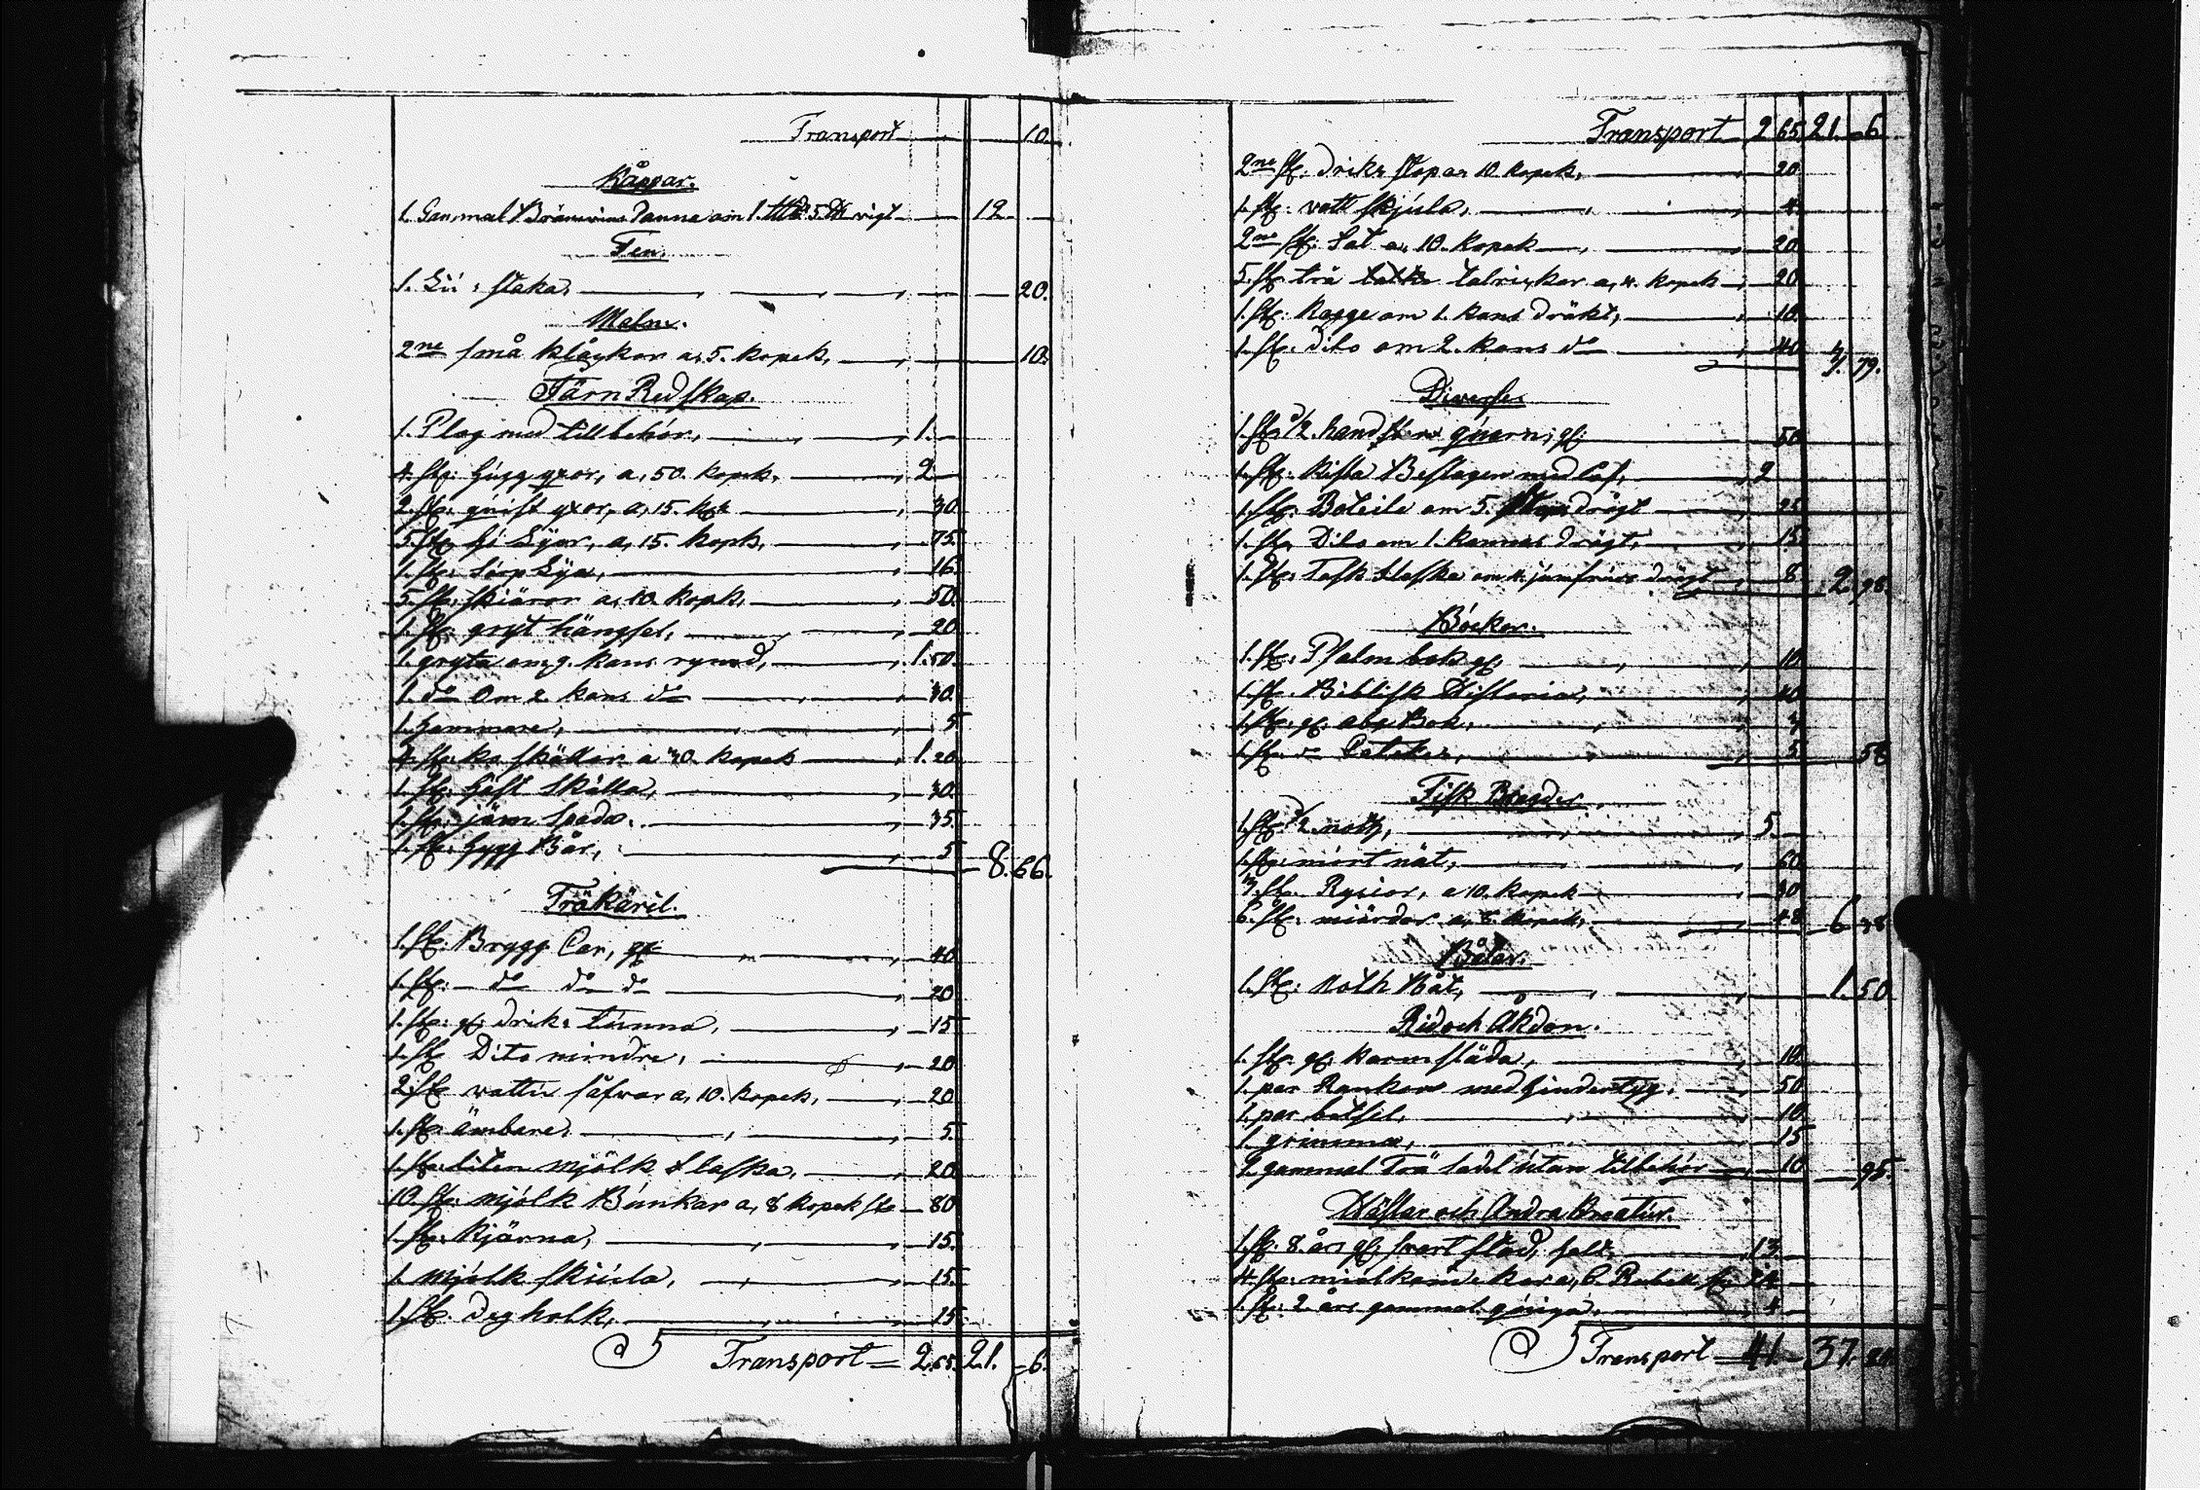 Transport 10.
Kåppar.
1. Gammal Bränvins Panna om 1. 5 vigt 12
Ten.
1. Liu staka, 20.
Malm.
2ne små klåckor a, 5. kopek, 10.
Järn Redskap.
1. Plog med tillbehör, 1.
4. st: hugg yxor, a, 50. kopek, 2
2. st: qvist yxor, a, 15. kpk 30.
5. st: Lijar, a, 15. kopk, 75.
1. st: Lija, 16.
5. st: skiäror a, 10. kopk, 50.
1. st: gryt hängsel, 20
1. gryta om 9. kans rymd, 1.50.
1. do om 2. kans do 30.
1. hammare, 5
4. st: ko skällor a 30. kopek 1.20
1. st: häst skälla, 30.
1. st: järn spada. 35.
1. st: 5
8.66.
Träkäril.
1. st: Brygg Car, gl: 40
1. st: do do do 20
1. st: gl: drik: tunna, 15
1. st Dito mindre, 20
2. st vattu såfvar a, 10. kopek, 20
1. st: ämbare, 5.
1. st: liten mjölk flaska, 20
10. st: mjölk Bunkar a, 8 kopek st 80
1. st: kjärna, 15.
1. mjölk skiula, 15.
1. st: deg holk, 15
Transport 2.65. 21. 6.
Transport 2 65 21. 6
2ne st: driks stopar 10 kopek, 20
1. st: vatt skjula, 4
2ne st: fat a, 10. kopek 20
5. st trä talrickar a, 4. kopek 20
1. st: Kagge om 1. kans dräkt, 10.
1. st: dito om 2. kans do 40
3. 79.
Diverse
1. st: 1/2 hand sten qvarn, gl: 50
1. st: kista Beslagen med lås, 2
1. st: Boteile om 5. drägt 25
1. st: Dito om 1. kannas drägt, 15
1. st: flaska om 4. jumfrurs drägt 8
2.98.
Böcker.
1. st: Psalm bok gl: 10
1. st. Biblisk Historia, 40
1. st: gl: abc Bok, 3
1. st: Cateket, 5
58
Fisk Bragder.
1. st: 1/2 noth, 5.
1. st: mört nät, 60
3. st. Rysior, a 10. kopek 30
6. st: miärdar a, 8. kopek, 48
6 38
Båtar.
1. st: Noth Båt, 1.50
Rid och Åkdon.
1. st: gl: karm släda, 10
1. par Rankor med hindertyg, 50
1. par betsel, 10
1. grimma, 15
1. gammal Trä sadel utan tilbehör 10
95.
Hästar och Andra Creatur.
1. st: 8. års gl: svart stod, falt, 13.
4. st: miolkande kor a, 6. Rubel st: 24
1. st: 2. års gammal qviga, 4
Transport 41. 37. 24.